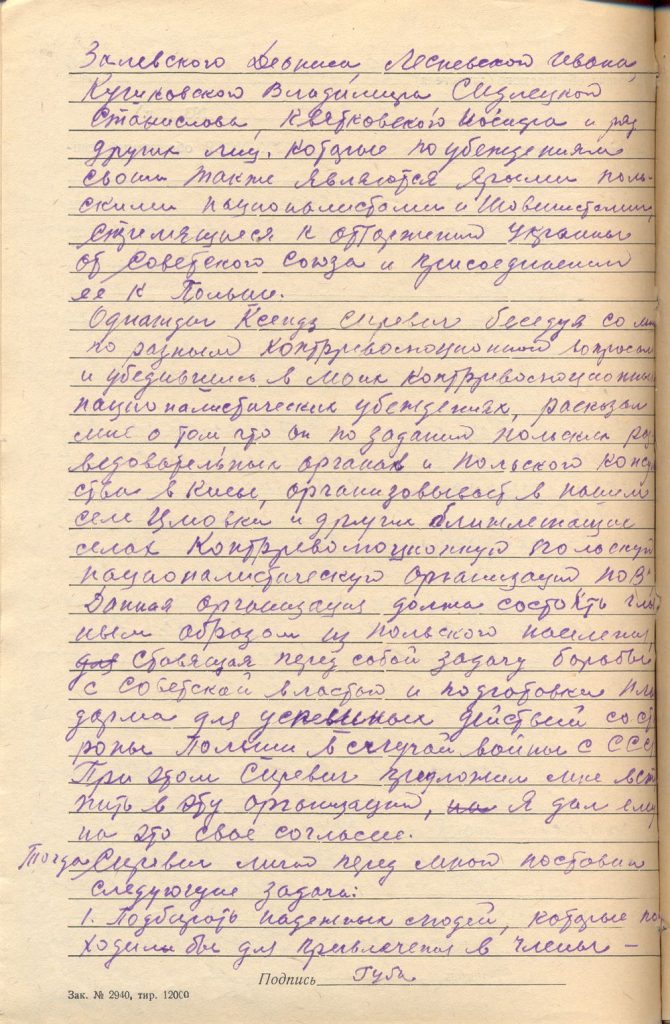 Залевского Дениса Лесневской Ивана,
Кучиковского Владимира Сидлецкой
Станислова, Квятковского Иосифа и ряд
других лиц. которые по убеждениям
своим также являются ярыми поль-
скими националистами и шовинистами,
стремящиеся к отторжению Украины
от Советского Союза и присоединении
ее к Польше.
Однажды Ксендз Сиревич беседуя со мной
по разным контрреволюционной вопросам
и убедившись в моих контрреволюционных
националистических убеждениях, расказал
мне о том что он по заданию польских раз
ведовательных органов и польского консуль
ства в Киеве, организовывает в нашем
селе и других близлежащих
селах Контрреволюционную польскую
националистическую организацию "ПОВ"
Данная организация должна состоять глав
ным образом из польского населения,
ставящая перед собой задачу борьбы
с советской властью и подготовки плац
дарма для успешных действий со ст
роны Польши в случай войны с СССР
При этом Сиревич предложил мне всту
пить в эту организацию, Я дал ему
на это свое согласие.
Тогда Сиревич лично передо мной поставил
следующие задачи:
1. Подбирать надежных людей, которые под
ходили бы для привлечения в члены –
Подпись Губа
Зак. № 2940, тир. 12000